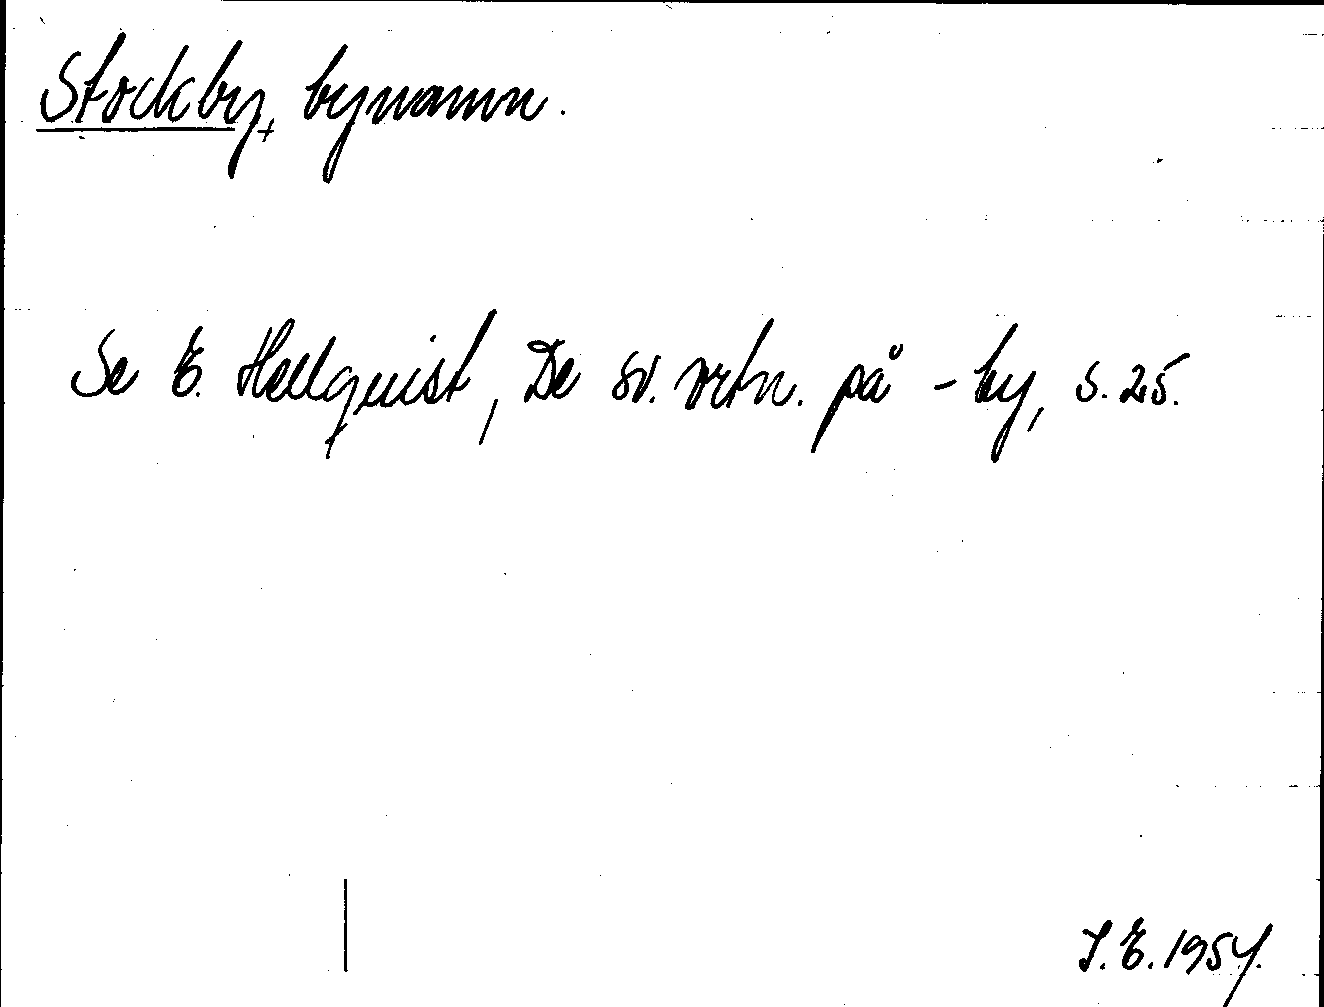 Stockby, bynamn.
Se E. Hellquist, De sv. ortn. på -by, s. 25.
I.E. 1954.